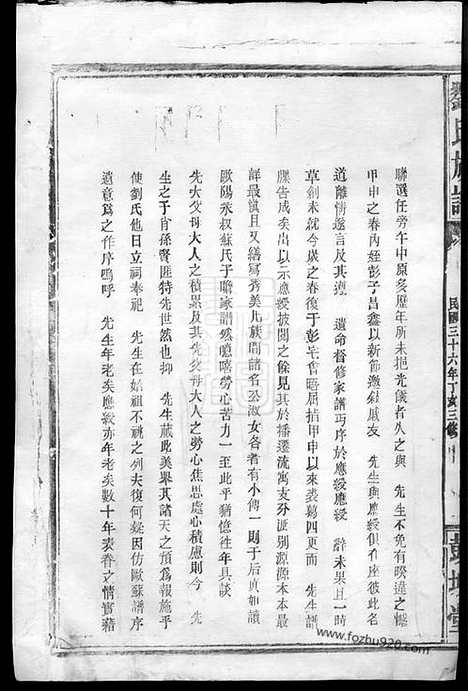 劉氏族譜
民國三十六年丁亥三修
聯選任旁午中原多歷年所未挹光儀者久之與　先生不免有暌違之憾
甲申之春內姪彭子昌鑫以新節邀余戚友　先生與應綬俱在席彼此各
道離情遂言及其滉　遺命督修家譜丐序於應綬應綬　辭未果且一時
草創未就今歲之春復于彭宅會晤屈指甲申以來裘葛四更而　先生譜
牒告成矣出以示應綬披閱之餘見其於播遷流寓支分派別源源本本最
詳最慎且又繕寫齊美凡族閒諸名公淑女各者有小傳一則于后貞如讀
歐陽永叔蘇氏于瞻家譜然噫嘻勞心苦力一至此乎猶憶往年具談
先大父母大人之積累及其先父母大人之勞心焦思處心積慮則今　先
生之于肖孫賢匪特先世然也抑　先生蔵此美舉其諸天之預為報施乎
使劉氏他日立祠奉祀　先生在始祖不祧之列夫復何疑因仿歐蘇譜序
遺意為之作序嗚呼　先生年老矣應綬亦年老矣數十年表眷之情實藉
www.fozhu920.com